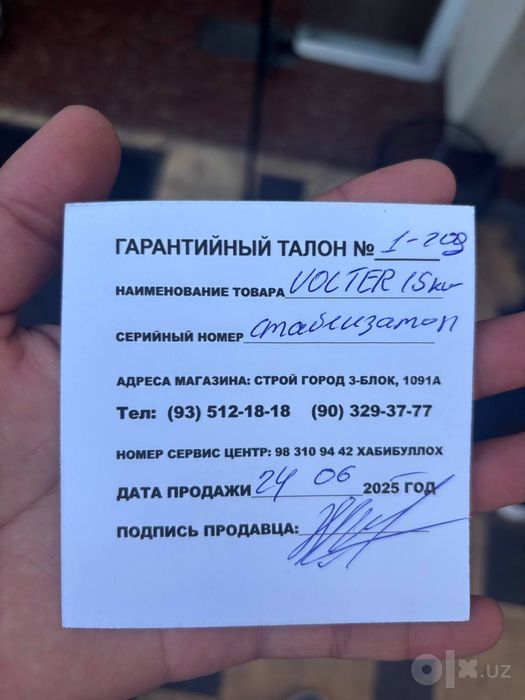 ГАРАНТИЙНЫЙ ТАЛОН № 1-год
НАИМЕНОВАНИЕ ТОВАРА VOLTER 15кв
СЕРИЙНЫЙ НОМЕР стаблизатоп
АДРЕСА МАГАЗИНА: СТРОЙ ГОРОД 3-БЛОК, 1091А
Тел: (93) 512-18-18 (90) 329-37-77
НОМЕР СЕРВИС ЦЕНТР: 98 310 94 42 ХАБИБУЛЛОХ
ДАТА ПРОДАЖИ 24 06 2025 ГОД
ПОДПИСЬ ПРОДАВЦА:
olx.uz